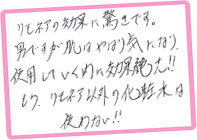 リセネアの効果に驚きです。
男ですが肌はやはり気になり、
使用していく内に効果絶大!!
もう、リセネア以外の化粧水は
使わない!!